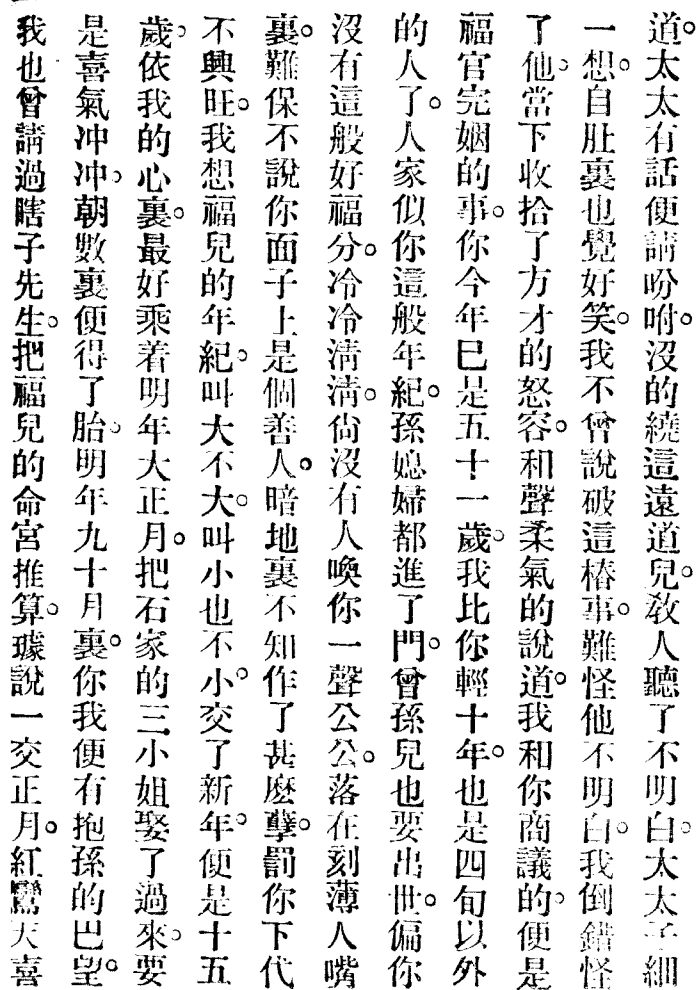 道。太太有話便請吩咐。沒的繞這遠道兒。敎人聽了不明白。太太子細
一想。自肚裏也覺好笑。我不曾說破這樁事。難怪他不明白。我倒錯怪
了他。當下收拾了方才的怒容。和聲柔氣的說道。我和你商議的。便是
福官完姻的事。你今年已是五十一歲。我比你輕十年。也是四旬以外
的人了。人家似你這般年紀。孫媳婦都進了門。曾孫兒也要出世。偏你
沒有這般好福分。冷冷淸淸。尙沒有人喚你一聲公公。落在刻薄人嘴
裏。難保不說你面子上是個善人。暗地裏不知作了甚麽孽。罰你下代
不興旺。我想福兒的年紀。叫大不大。叫小也不小。交了新年。便是十五
歲。依我的心裏。最好乘着明年大正月。把石家的三小姐娶了過來。要
是喜氣冲冲。朝數裏便得了胎。明年九十月裏。你我便有抱孫的巴望。
我也曾請過瞎子先生。把福兒的命宮推算。據說一交正月。紅鸞天喜